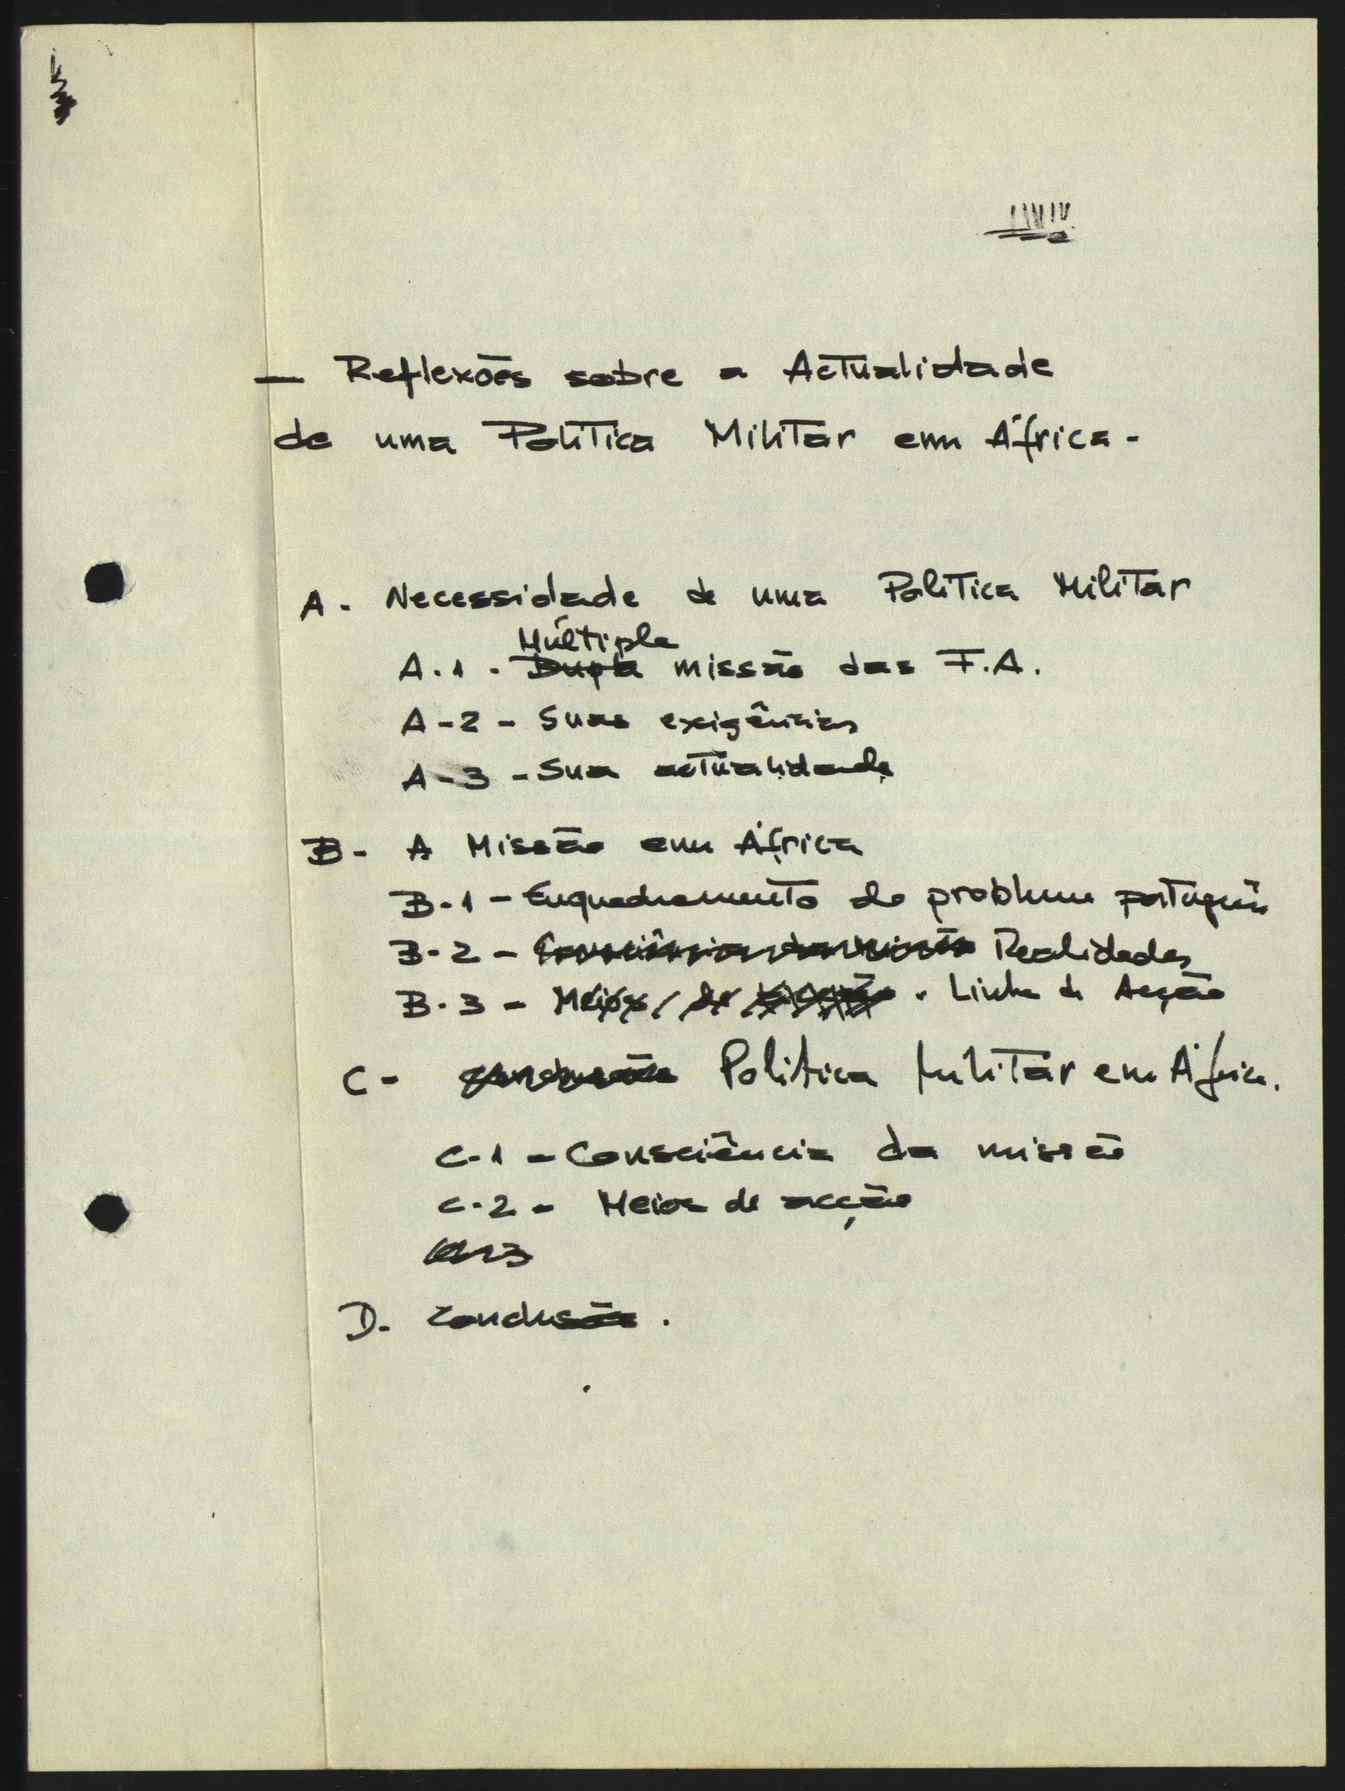 — Reflexões sobre a Actualidade
de uma Politica Militar em África -
A - Necessidade de uma Politica Militar
Múltipla
A.1 - Dupla missão das F.A.
A-2 - Suas exigências
A-3 - Sua actualidade
B - A Missão em África
B-1 - Enquadramento do problema português
B-2 - Consciência da missão Realidades
B.3 - Meios de acção. Linha de Acção
C - Conclusão Politica Militar em África.
C.1 - Consciência da missão
C.2 - Meios de acção
D - Conclusão.